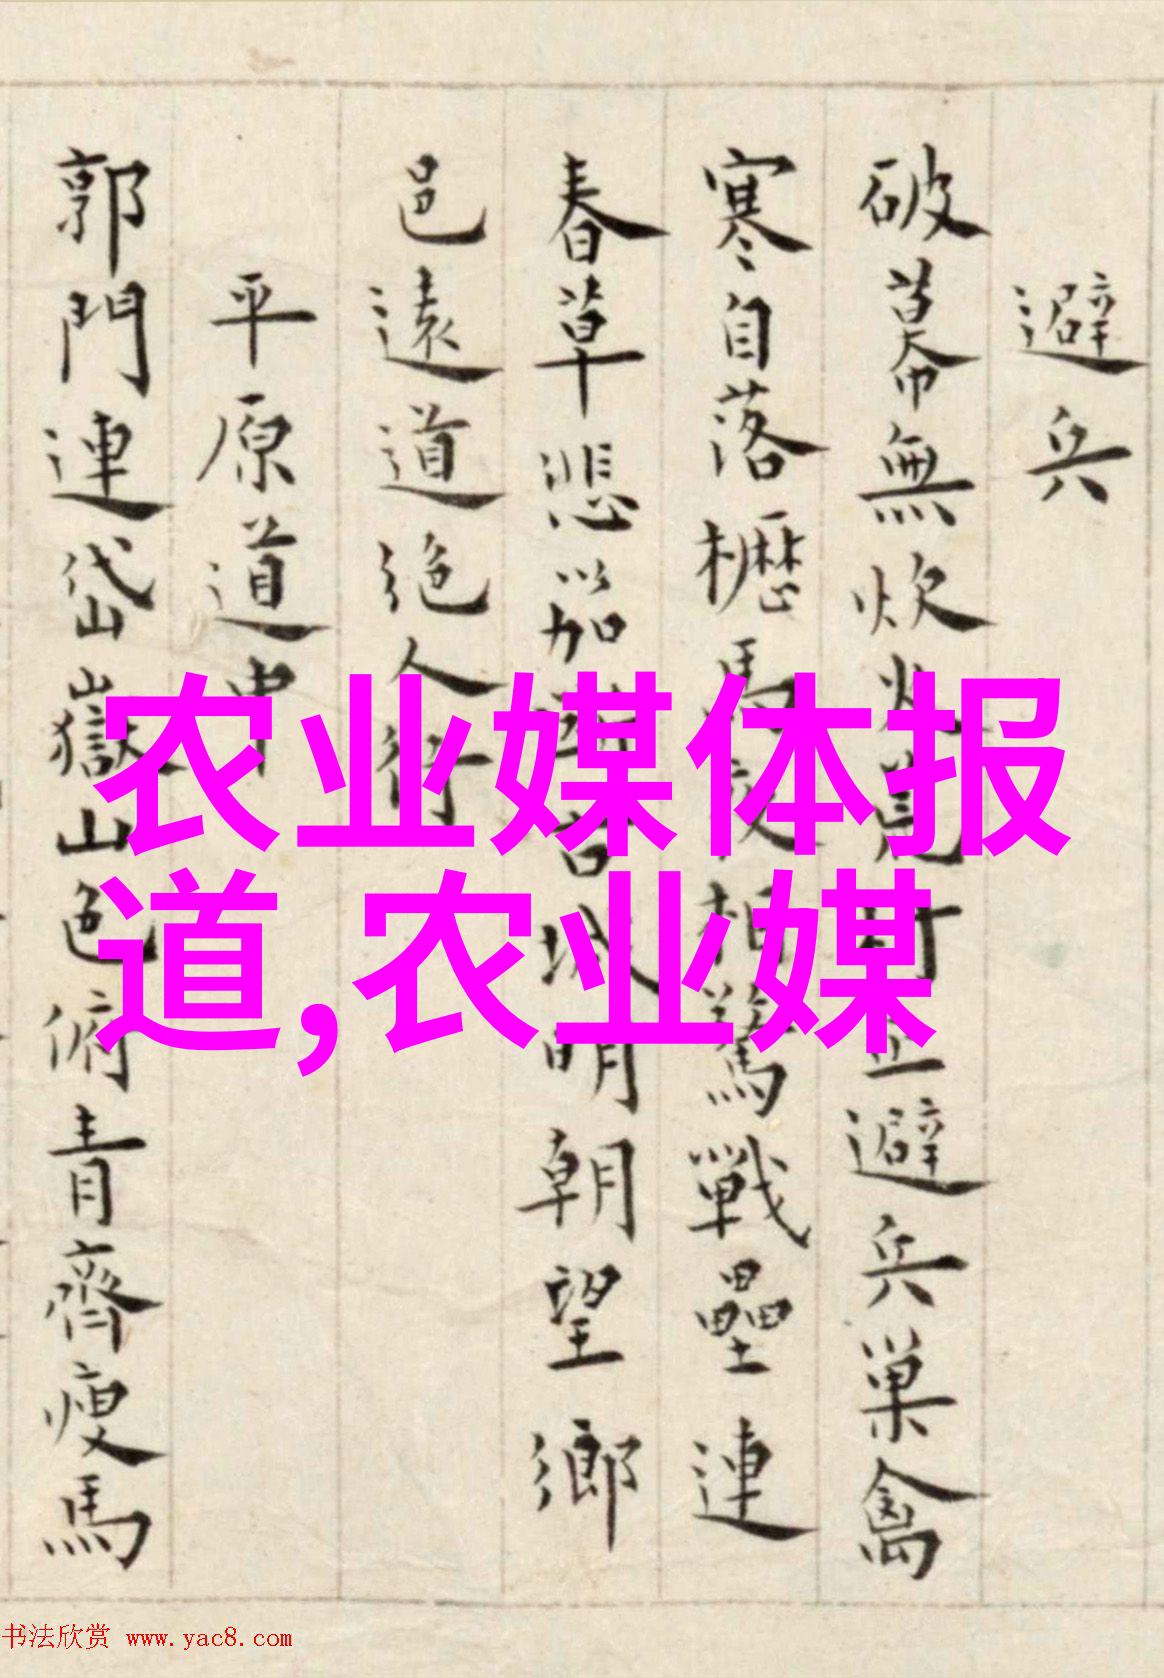 避兵
破幕無炊火荒村正避兵巢禽
寒自落櫪馬夜相驚戰壘連
春草悲笳
城明朝望鄉
邑遠道絶人行
平原道中
郭門連岱嶽山色俯青齊瘦馬
农业媒体报
道,农业媒
书法欣赏 www.yac8.com